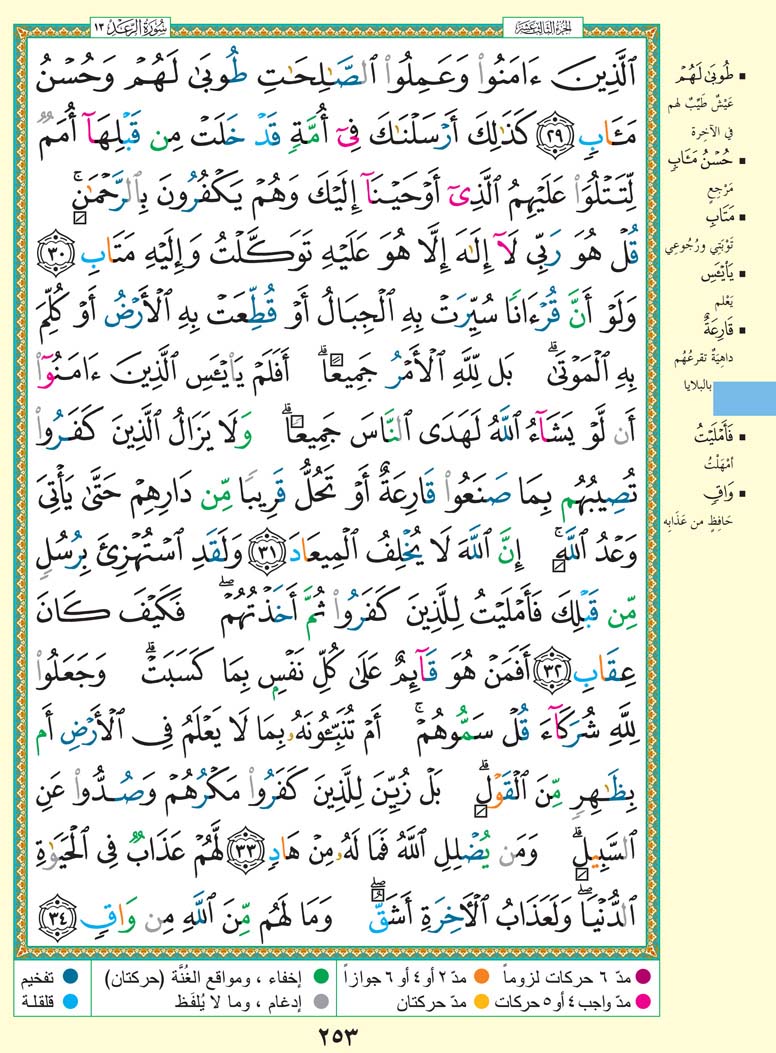 الجزء الثالث عشر
سورة الرعد ١٣
ٱلَّذِينَ ءَامَنُوا۟ وَعَمِلُوا۟ ٱلصَّـٰلِحَـٰتِ طُوبَىٰ لَهُمْ وَحُسْنُ
مَـَٔابٍ ٢٩ كَذَٰلِكَ أَرْسَلْنَـٰكَ فِىٓ أُمَّةٍ قَدْ خَلَتْ مِن قَبْلِهَآ أُمَمٌ
لِّتَتْلُوَا۟ عَلَيْهِمُ ٱلَّذِىٓ أَوْحَيْنَآ إِلَيْكَ وَهُمْ يَكْفُرُونَ بِٱلرَّحْمَـٰنِ ۚ
قُلْ هُوَ رَبِّى لَآ إِلَـٰهَ إِلَّا هُوَ عَلَيْهِ تَوَكَّلْتُ وَإِلَيْهِ مَتَابِ ٣٠
وَلَوْ أَنَّ قُرْءَانًا سُيِّرَتْ بِهِ ٱلْجِبَالُ أَوْ قُطِّعَتْ بِهِ ٱلْأَرْضُ أَوْ كُلِّمَ
بِهِ ٱلْمَوْتَىٰ ۗ بَل لِّلَّهِ ٱلْأَمْرُ جَمِيعًا ۗ أَفَلَمْ يَا۟يْـَٔسِ ٱلَّذِينَ ءَامَنُوٓا۟
أَن لَّوْ يَشَآءُ ٱللَّهُ لَهَدَى ٱلنَّاسَ جَمِيعًا ۗ وَلَا يَزَالُ ٱلَّذِينَ كَفَرُوا۟
تُصِيبُهُم بِمَا صَنَعُوا۟ قَارِعَةٌ أَوْ تَحُلُّ قَرِيبًا مِّن دَارِهِمْ حَتَّىٰ يَأْتِىَ
وَعْدُ ٱللَّهِ ۚ إِنَّ ٱللَّهَ لَا يُخْلِفُ ٱلْمِيعَادَ ٣١ وَلَقَدِ ٱسْتُهْزِئَ بِرُسُلٍ
مِّن قَبْلِكَ فَأَمْلَيْتُ لِلَّذِينَ كَفَرُوا۟ ثُمَّ أَخَذْتُهُمْ ۖ فَكَيْفَ كَانَ
عِقَابِ ٣٢ أَفَمَنْ هُوَ قَآئِمٌ عَلَىٰ كُلِّ نَفْسٍۭ بِمَا كَسَبَتْ ۗ وَجَعَلُوا۟
لِلَّهِ شُرَكَآءَ قُلْ سَمُّوهُمْ ۚ أَمْ تُنَبِّـُٔونَهُۥ بِمَا لَا يَعْلَمُ فِى ٱلْأَرْضِ أَم
بِظَـٰهِرٍ مِّنَ ٱلْقَوْلِ ۗ بَلْ زُيِّنَ لِلَّذِينَ كَفَرُوا۟ مَكْرُهُمْ وَصُدُّوا۟ عَنِ
ٱلسَّبِيلِ ۗ وَمَن يُضْلِلِ ٱللَّهُ فَمَا لَهُۥ مِنْ هَادٍ ٣٣ لَّهُمْ عَذَابٌ فِى ٱلْحَيَوٰةِ
ٱلدُّنْيَا ۖ وَلَعَذَابُ ٱلْـَٔاخِرَةِ أَشَقُّ ۖ وَمَا لَهُم مِّنَ ٱللَّهِ مِن وَاقٍ ٣٤
▪ طُوبَىٰ لَهُمْ
عَيْشٌ طَيِّبٌ لهم
في الآخِرة
▪ حُسْنُ مَـَٔابٍ
مَرْجِعٍ
▪ مَتَابِ
تَوْبَتِي ورُجُوعِي
▪ يَا۟يْـَٔسِ
يَعْلم
▪ قَارِعَةٌ
داهِيَةٌ تقرعُهُم
بالبلايا
▪ فَأَمْلَيْتُ
أمْهَلْتُ
▪ وَاقٍ
حَافِظٍ من عَذَابِه
مدّ ٦ حركات لزوماً
مدّ ٢ أو ٤ أو ٦ جوازاً
إخفاء ، ومواقع الغُنَّة (حركتان)
تفخيم
مدّ واجب ٤ أو ٥ حركات
مدّ حركتان
إدغام ، وما لا يُلفَظ
قلقلة
٢٥٣